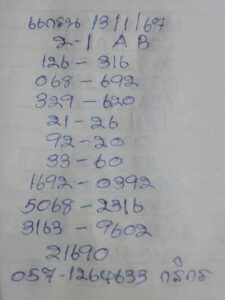 13/1/67
2-1 A B
126-316
068-692
329-620
21-26
92-20
33-60
1692-0392
5068-2316
3163-9602
21690
057-1264633